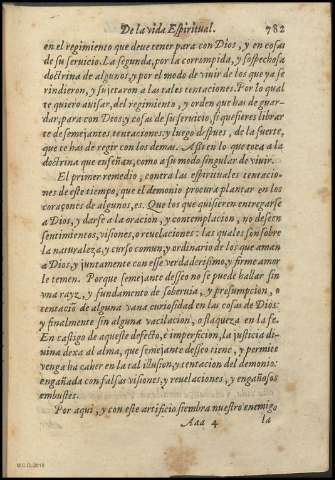 De la vida Espiritual. 782
en el regimiento que deue tener para con Dios, y en cosas
de su seruicio. La segunda, por la corrompida, y sospechosa
doctrina de algunos, y por el modo de viuir de los que ya se
rindieron, y sujetaron a las tales tentaciones. Por lo qual
te quiero auisar, del regimiento, y orden que has de guar-
dar, para con Dios y cosas de su seruicio, si quieres librar
te de semejantes tentaciones: y luego despues, de la suerte,
que te has de regir con los demas. Assi en lo que toca a la
doctrina que enseñan, como a su modo singular de viuir.
El primer remedio, contra las espirituales tentacio-
nes de este tiempo, que el demonio procura plantar en los
coraçones de algunos, es. Que los que quisieren entregarse
a Dios, y darse a la oracion, y contemplacion, no desseen
sentimientos, visiones, o reuelaciones: las quales son sobre
la naturaleza, y curso comun, y ordinario de los que aman
a Dios, y juntamente con esse verdaderissimo, y firme amor
le temen. Porque semejante desseo no se puede hallar sin
vna rayz, y fundamento de soberuia, y presumpcion, o
tentaciõ de alguna vana curiosidad en las cosas de Dios:
y finalmente sin alguna vacilacion, o flaqueza en la fe.
En castigo de aqueste defecto, e imperficion, la justicia di-
uina dexa al alma, que semejante desseo tiene, y permite
venga ha caher en la tal illusion, y tentacion del demonio:
engañada con falsas visiones, y reuelaciones, y engañosos
embustes.
Por aqui, y con este artificio siembra nuestro enemigo
Aaa 4 la
M.C.D.2018